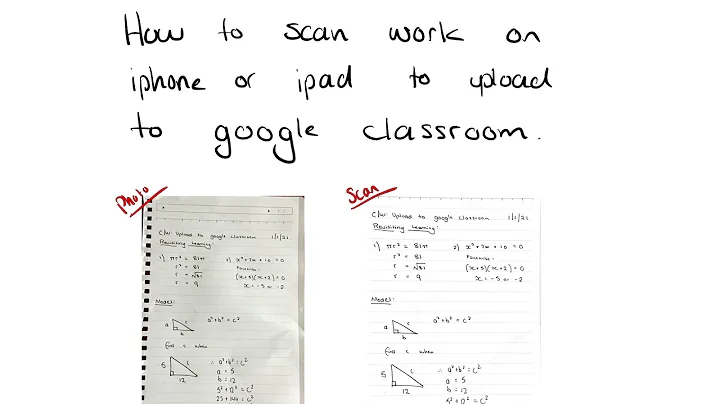 How to scan work on
iphone or ipad to upload
to google classroom.
Photo
C/W: Upload to google classroom 1/1/21
Revisiting Learning:
1) πr² = 81π 2) x² + 7x + 10 = 0
r² = 81 Factorise:
r = √81 (x+5)(x+2) = 0
r = 9 x = -5 or -2
Model:
a c b a² + b² = c²
Find c when
5 c 12 ∴ a² + b² = c²
a = 5
b = 12
5² + 12² = c²
25 + 144 = c²
Scan
C/W: Upload to google classroom 1/1/21
Revisiting Learning:
1) πr² = 81π 2) x² + 7x + 10 = 0
r² = 81 Factorise:
r = √81 (x+5)(x+2) = 0
r = 9 x = -5 or -2
Model:
a c b a² + b² = c²
Find c when
5 c 12 ∴ a² + b² = c²
a = 5
b = 12
5² + 12² = c²